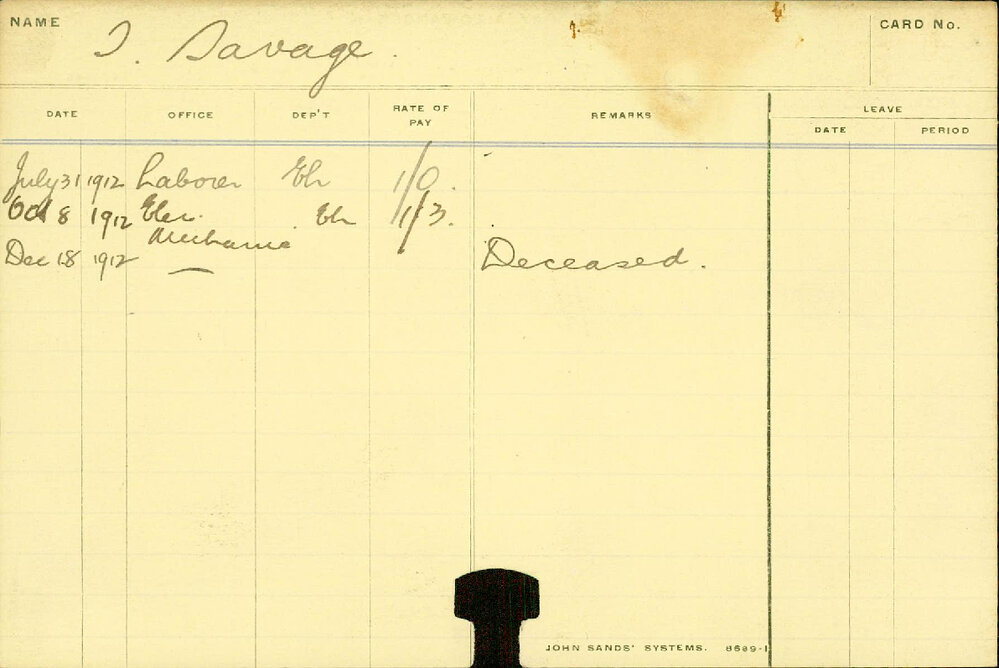 NAME CARD No.
Savage.
DATE OFFICE DEP'T RATE OF PAY REMARKS LEAVE
DATE PERIOD
July 31 1912 Laborer 1/0.
Oct 8 1912 Elec. 1/3.
Mechanic
Dec 18 1912 — Deceased.
JOHN SANDS' SYSTEMS. 8699-1